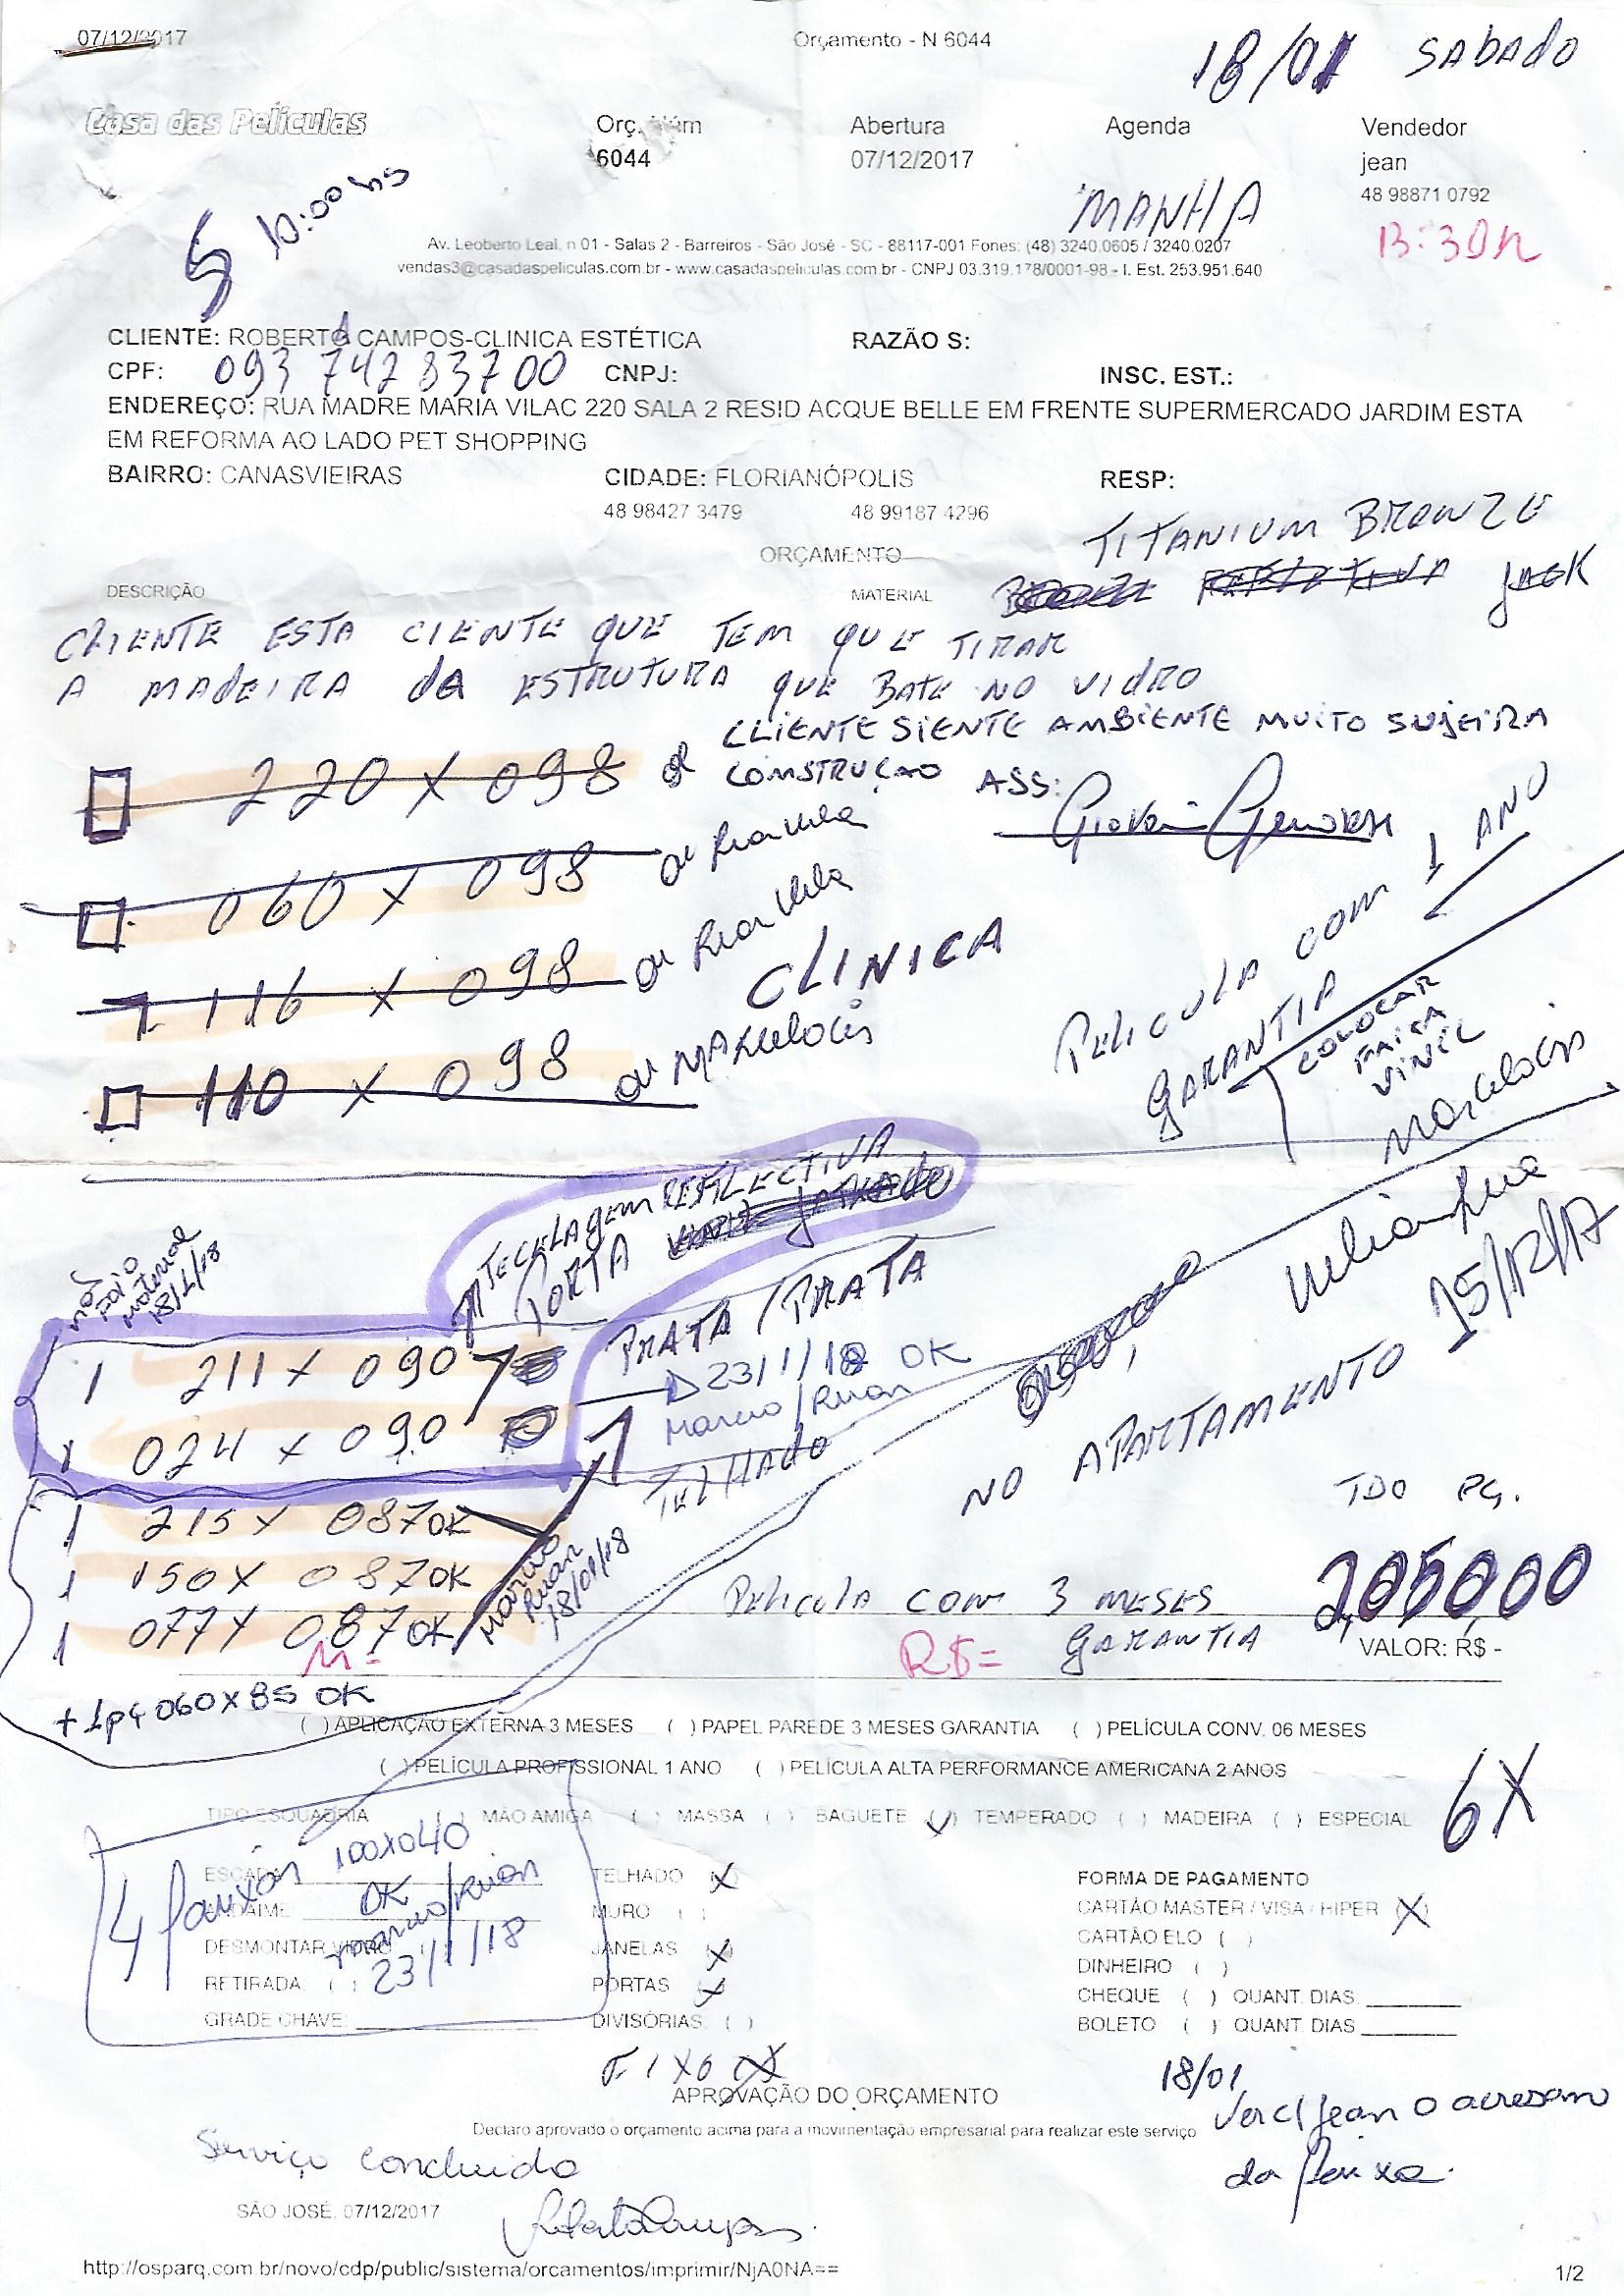 07/12/2017 Orçamento - N 6044
18/01 SABADO
Casa das Películas Orç. Núm Abertura Agenda Vendedor
6044 07/12/2017 jean
48 98871 0792
10:00 hs MANHA 13:30h
Av. Leoberto Leal, n 01 - Salas 2 - Barreiros - São José - SC - 88117-001 Fones: (48) 3240.0605 / 3240.0207
vendas3@casadaspeliculas.com.br - www.casadaspeliculas.com.br - CNPJ 03.319.178/0001-98 - I. Est. 253.951.640
CLIENTE: ROBERTA CAMPOS-CLINICA ESTÉTICA RAZÃO S:
CPF: 093 742 837 00 CNPJ: INSC. EST.:
ENDEREÇO: RUA MADRE MARIA VILAC 220 SALA 2 RESID ACQUE BELLE EM FRENTE SUPERMERCADO JARDIM ESTA
EM REFORMA AO LADO PET SHOPPING
BAIRRO: CANASVIEIRAS CIDADE: FLORIANÓPOLIS RESP:
48 98427 3479 48 99187 4296
TITANIUM BRONZE
ORÇAMENTO
DESCRIÇÃO MATERIAL
CLIENTE ESTA CIENTE QUE TEM QUE TIRAR
A MADEIRA DA ESTRUTURA QUE BATE NO VIDRO
CLIENTE SIENTE AMBIENTE MUITO SUJEIRA
CONSTRUÇAO ASS:
220 X 098
060 X 098
1 116 X 098
CLINICA
110 X 098
PELICULA COM 1 ANO
GARANTIA
COLOCAR
FAIXA
VINIL
15/12/17
REFLECTIVA
PORTA
PRATA / PRATA
não
foi o
material
18/1/18
1 211 X 090
23/1/18 OK
Marcio/Ruan
1 024 X 090
TELHADO
NO APARTAMENTO
1 215 X 087 OK
1 150 X 087 OK
1 077 X 087 OK
Marcio
Ruan
18/01/18
TDO PG.
2,050,00
PELICULA COM 3 MESES
GARANTIA
R$=
VALOR: R$ -
+ 1pç 060X85 OK
( ) APLICAÇÃO EXTERNA 3 MESES ( ) PAPEL PAREDE 3 MESES GARANTIA ( ) PELÍCULA CONV. 06 MESES
( ) PELÍCULA PROFISSIONAL 1 ANO ( ) PELÍCULA ALTA PERFORMANCE AMERICANA 2 ANOS
6X
TIPO ESQUADRIA ( ) MÃO AMIGA ( ) MASSA ( ) BAGUETE ( ) TEMPERADO ( ) MADEIRA ( ) ESPECIAL
4 faixas 100X040
OK
Marcio/Ruan
23/1/18
ESCADA TELHADO (X) FORMA DE PAGAMENTO
ANDAIME MURO ( ) CARTÃO MASTER / VISA / HIPER (X)
DESMONTAR VIDRO JANELAS (X) CARTÃO ELO ( )
RETIRADA ( ) PORTAS (X) DINHEIRO ( )
GRADE CHAVE: DIVISÓRIAS ( ) CHEQUE ( ) QUANT. DIAS
BOLETO ( ) QUANT. DIAS
FIXO X
APROVAÇÃO DO ORÇAMENTO
Declaro aprovado o orçamento acima para a movimentação empresarial para realizar este serviço
18/01
Ver c/ Jean o
da faixa.
Serviço concluido
SÃO JOSÉ, 07/12/2017
http://osparq.com.br/novo/cdp/public/sistema/orcamentos/imprimir/NjA0NA== 1/2